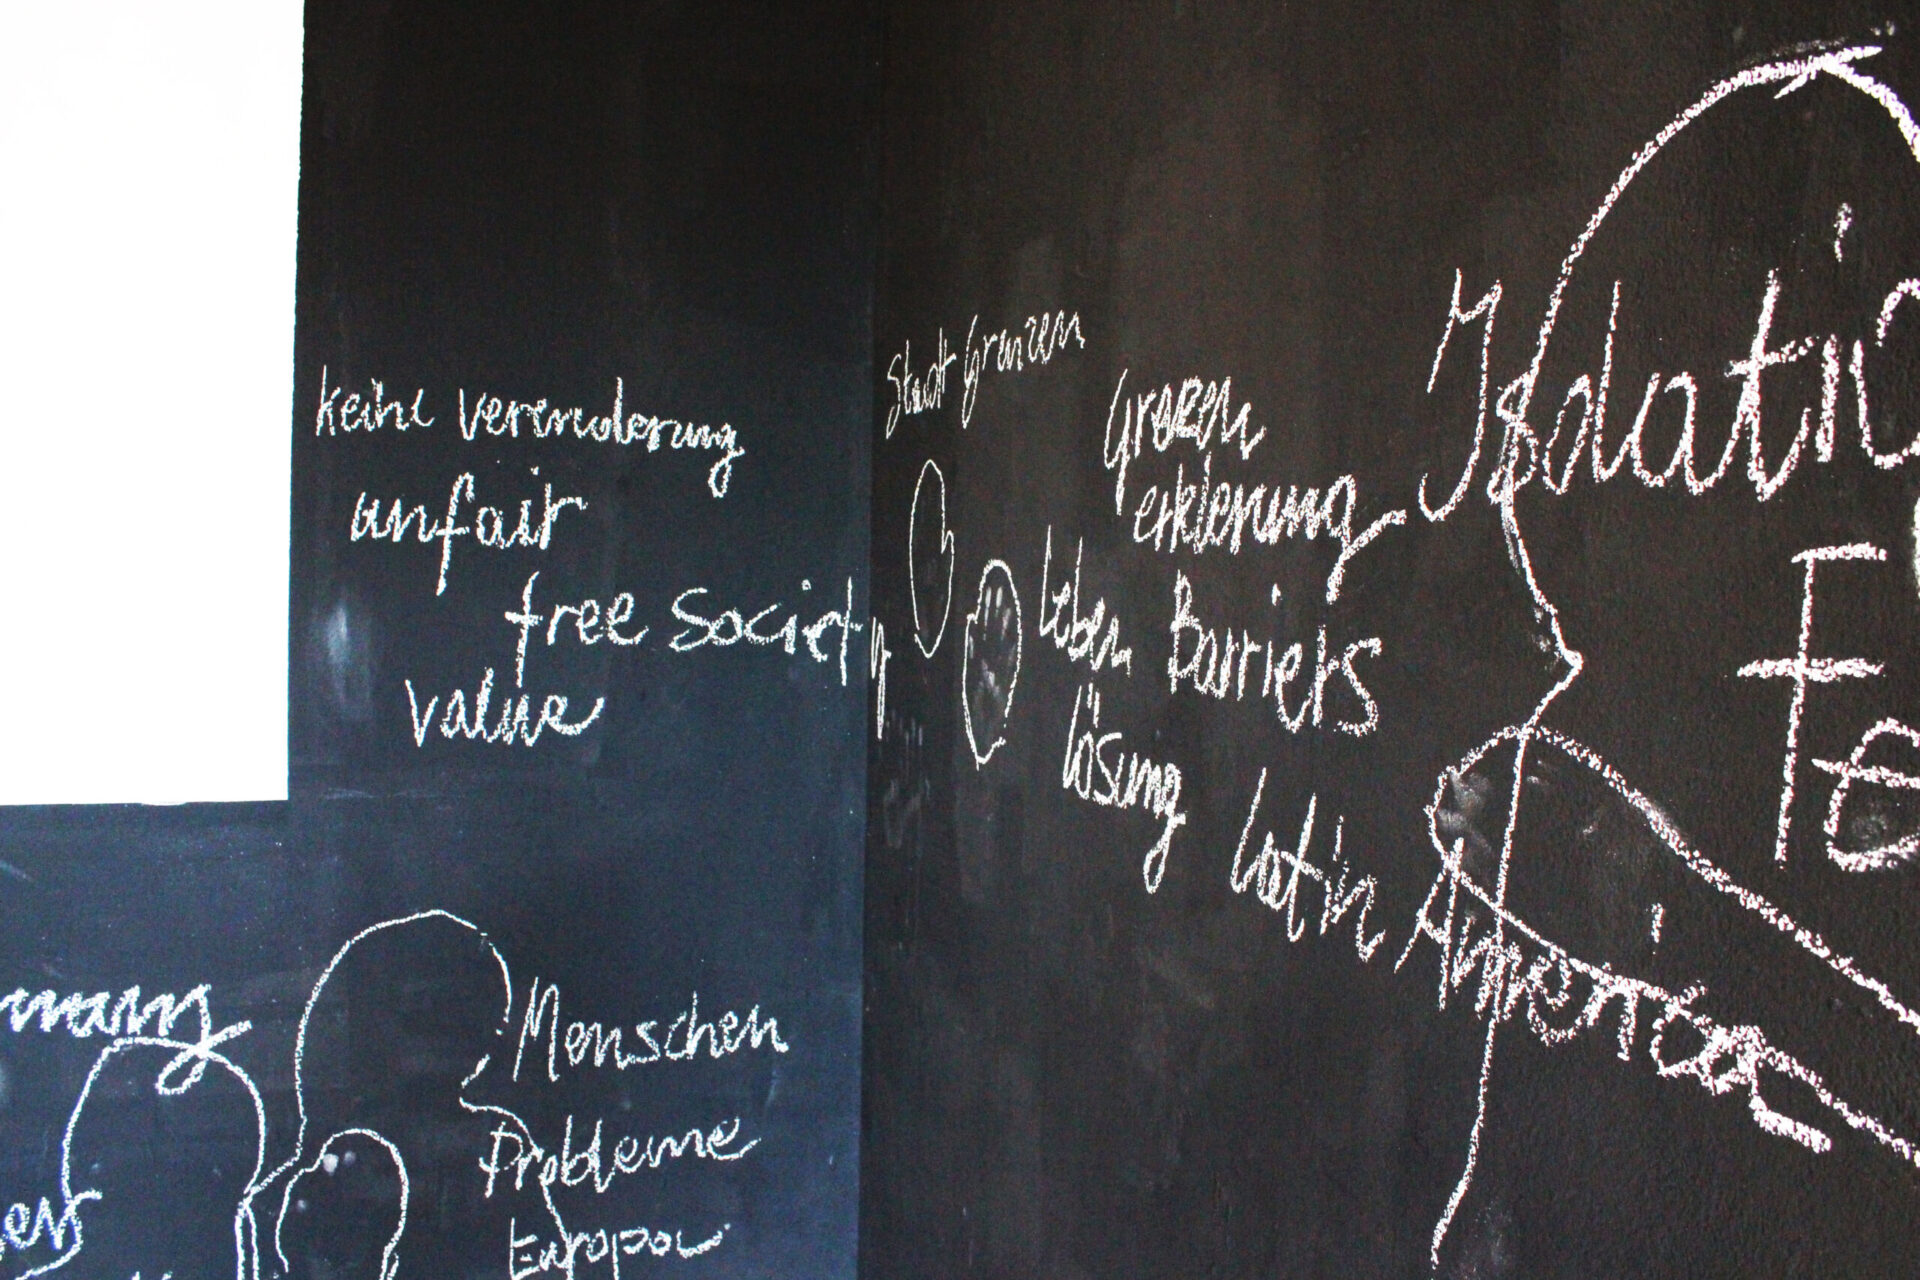 keine verenderung
unfair
free society
value
Stadt Grenzen
Grozen
erklerung
Leben
Barriers
lösung
Latin America
Isolatio
Menschen
Probleme
Europa